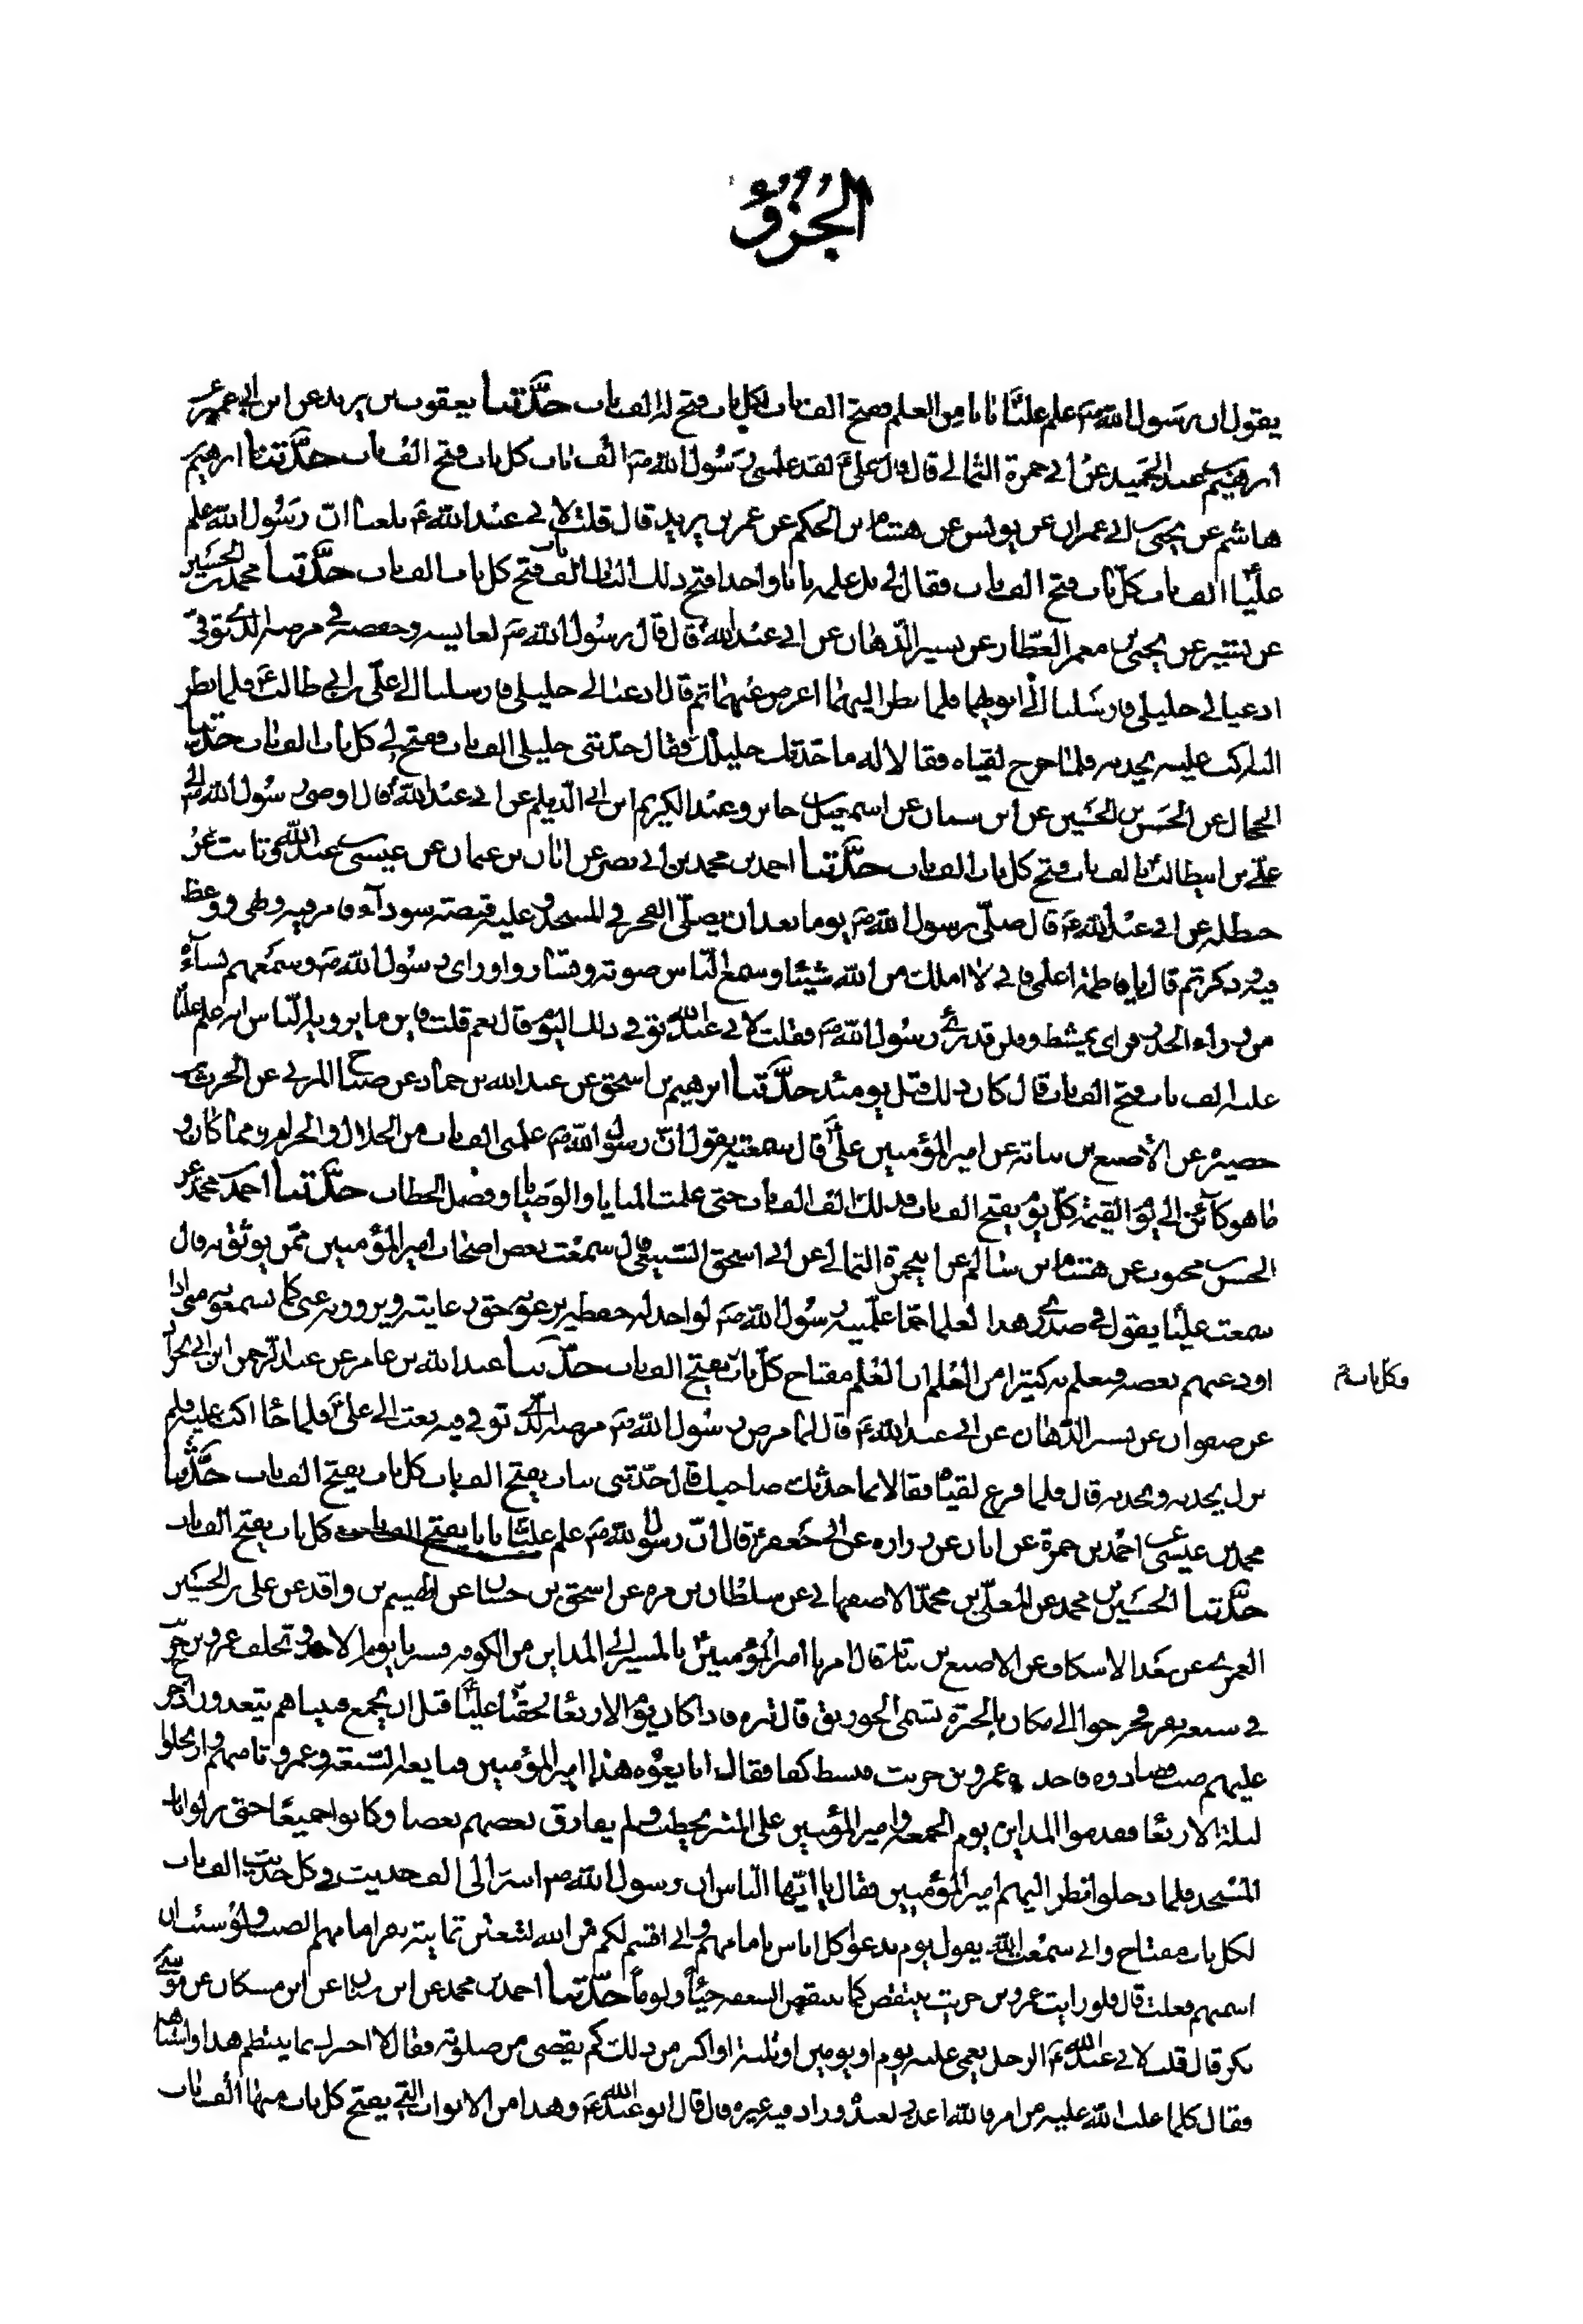 الجزؤ
يقول ان رسول الله صم علم عليًّا بابا من العلم ففتح الف باب لكل باب فتح له الف باب حدَّثنا يعقوب بن يزيد عن ابن ابي عمير عن
ابرهيم بن عبد الحميد عن ابي حمزة الثمالي قال قال علي ع لقد علمني رسول الله صم الف باب كل باب فتح الف باب حدَّثنا ابرهيم بن
هاشم عن يحيى بن ابي عمران عن يونس عن هشام بن الحكم عن عمر بن يزيد قال قلت لابي عبد الله ع بلغنا ان رسول الله علم
عليًّا الف باب كل باب فتح الف باب فقال لي بل علمه بابا واحدا فتح ذلك الباب الف باب فتح كل باب الف باب حدَّثنا محمد بن الحسين
عن بشير عن يحيى بن معمر العطّار عن بشير الدّهان عن ابي عبد الله ع قال قال رسول الله صم لعايشه وحفصه في مرضه الذي توفّي
ادعيا لي خليلي فارسلتا الى ابويهما فلما نظر اليهما اعرض عنهما ثم قال ادعيا لي خليلي فارسلتا الى علّي بن ابي طالب ع فلما نظر
اليه اكب عليه يحدثه فلما خرج لقياه فقالا له ما حدّثك خليلك فقال حدّثني خليلي الف باب ففتح لي كل باب الف باب حدّثنا
الحجال عن الحسن بن الحسين عن ابن سنان عن اسمعيل بن جابر وعبد الكريم عن ابي الديلم عن ابي عبد الله ع قال اوصى رسول الله صم الى
علي بن ابيطالب ع بالف باب فتح كل باب الف باب حدَّثنا احمد بن محمد بن ابي نصر عن ابان بن عثمان عن عيسى بن عبد الله وثابت عن
حنظله عن ابي عبد الله ع قال صلّى رسول الله صم يوما بعد ان يصلّي الفجر في المسجد وعليه قميصة سودآء فامر فيه ونهى ووعظ
فيه وذكر ثم قال يا فاطمة اعملي فاني لا املك من الله شيئا وسمع الناس صوته وتساروا وراى رسول الله صم وسمعهم نساؤه
من وراء الجدر فهي يمشطن وقلن قد برئ رسول الله صم فقلت لابي عبد الله توفي ذلك اليوم قال نعم قلت فاين ما يرويه الناس انه علم عليًّا
عليه الف باب فتح الف باب قال كان ذلك قبل يومئذ حدَّثنا ابرهيم بن اسحق عن عبد الله بن حماد عن صباح المزني عن الحرث بن
حصيره عن الاصبغ بن نباته عن امير المؤمنين علي ع قال سمعته يقول انّ رسول الله صم علمني الف باب من الحلال والحرام ومما كان و
ما هو كائن الى يوم القيمة كلّ يوم يفتح الف باب فذلك الف الف باب حتى علمت المنايا والوصايا وفصل الخطاب حدَّثنا احمد بن محمد عن
الحسن بن محبوب عن هشام بن سالم عن ابيحمزة الثمالي عن ابي اسحق السبيعي قال سمعت بعض اصحاب امير المؤمنين ممّن يوثق به قال
سمعت عليًّا يقول في صدري هذا لعلما جمّا علّمنيه رسول الله صم لو اجد له حفظه يرعونه حق رعايته ويروونه عني كما يسمعونه مني اذا
اودعتهم بعضه فيعلم به كثيرا من العلم ان العلم مفتاح كلّ باب يفتح الف باب حدّثنا عبد الله بن عامر عن عبد الرحمن ابن ابي نجران
وكل باب م
عن صفوان عن بشير الدّهان عن ابي عبد الله ع قال لما مرض رسول الله صم مرضه الّذي توفي فيه بعث الى علي ع فلما جآء اكب عليه فلم
يزل يحدثه ويحدثه قال فلما فرغ لقياه فقالا بما حدثك صاحبك قال حدّثني بباب يفتح الف باب كل باب يفتح الف باب حدَّثنا
محمد بن عيسى عن احمد بن حمزة عن ابان عن زراره عن ابي جعفر ع قال انّ رسول الله صم علم عليًّا بابا يفتح الف باب كل باب يفتح الف باب
حدَّثنا الحسين بن محمد عن المعلّى بن محمد الاصفهاني عن سلطان بن مره عن اسحق بن حسان عن الهيثم بن واقد عن علي بن الحسين
العبدي عن سعد الاسكاف عن الاصبغ بن نباته قال امرنا امير المؤمنين ع بالمسير الى المداين من الكوفه فسرنا يوم الاحد وتخلف عمرو بن حريث
في سبعه نفر فخرجوا الى مكان بالحيرة تسمى الخورنق قال نتنزه فاذا كان يوم الاربعا لحقنا عليًّا قبل ان يجمع فبيناهم يتغدون اذ خرج
عليهم ضب فصادوه فاخذه عمرو بن حريث فبسط كفه فقال بايعوه هذا امير المؤمنين فبايعه السّبعة وعمرو ثامنهم وارتحلوا
ليلة الاربعا فقدموا المداين يوم الجمعه وامير المؤمنين على المنبر يخطب ولم يفارق بعضهم بعضا وكانوا جميعًا حتى نزلوا باب
المسجد فلما دخلوا نظر اليهم امير المؤمنين فقال يا ايّها الناس ان رسول الله صم اسر الي الف حديث في كل حديث الف باب
لكل باب مفتاح واني سمعت الله يقول يوم ندعوا كل اناس بامامهم واني اقسم لكم بالله لتبعثن ثمانية نفر امامهم الضب ولو شئت ان
اسميهم فعلت قال فلو رايت عمرو بن حريث ينتفض كما تنتفض السعفه حيآء ولوما حدَّثنا احمد بن محمد عن ابن سنان عن ابن مسكان عن موسى بن
بكر قال قلت لابي عبد الله ع الرجل يغمى عليه يوم او يومين او ثلثة او اكثر من ذلك كم يقضي من صلوته فقال الا اخبرك بما ينتظم هذا واشباهه
فقال كلما غلب الله عليه من امر فالله اعذر لعبده وزاد فيه غيره قال قال ابو عبد الله ع وهذا من الابواب التي يفتح كل باب منها الف باب